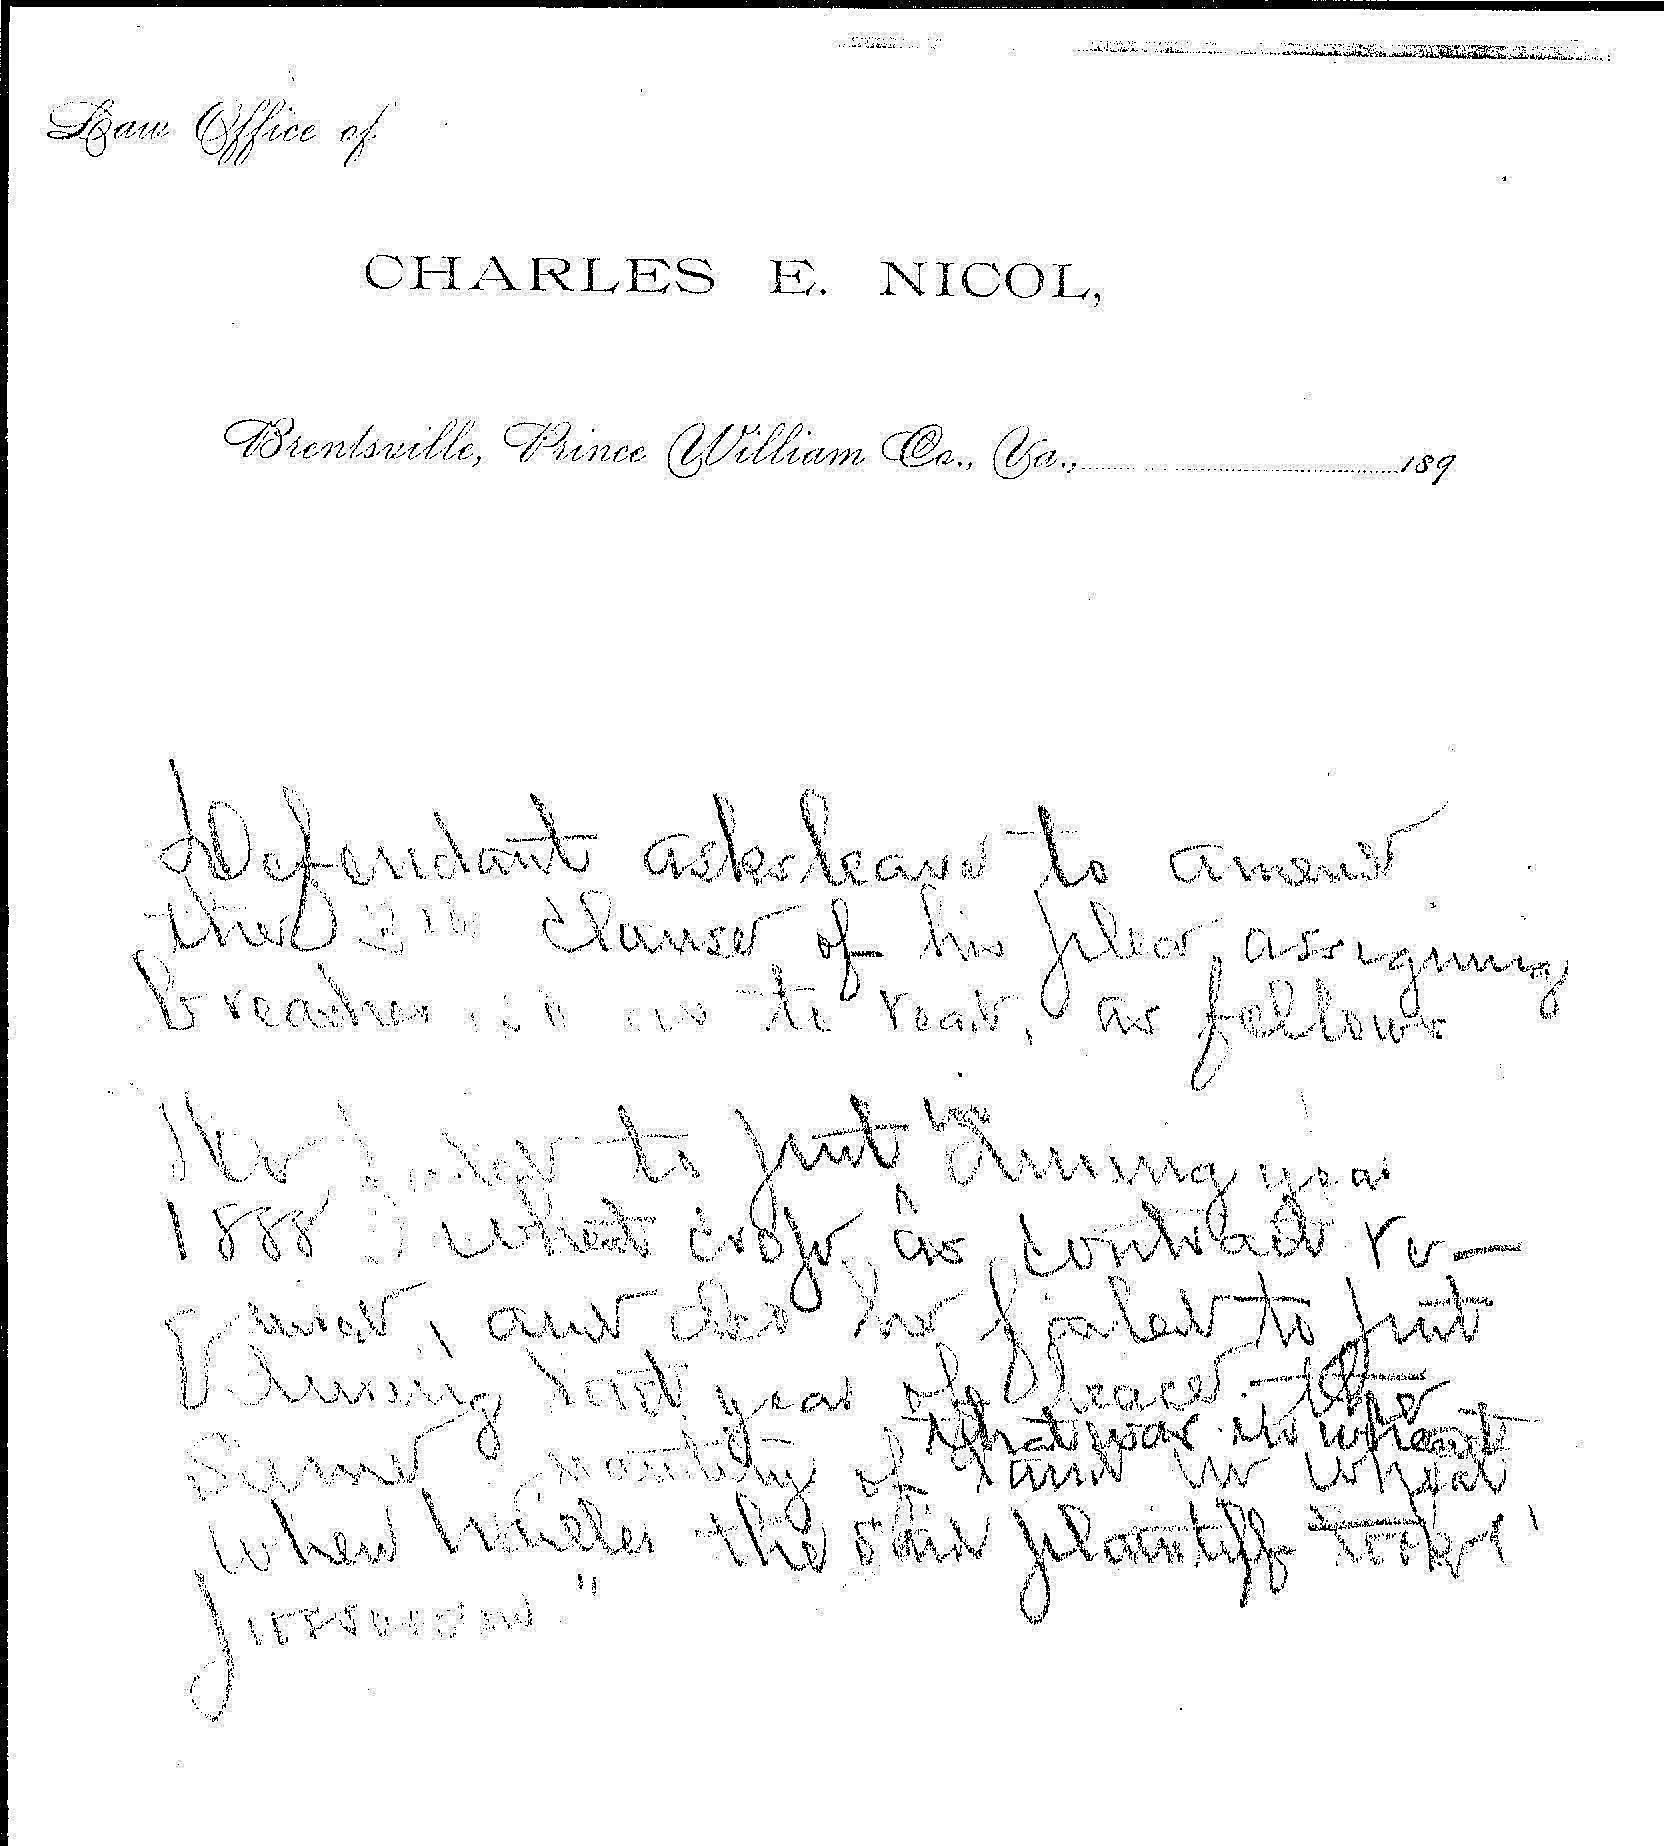 Law Office of
CHARLES E. NICOL,
Brentsville, Prince William Co., Va., 189
Defendant asks leave to amend
the clause of his plea assigning
breaches so as to read, as follows
He failed to put in during year
1888 wheat crop as contract re—
quired, and also he failed to put
during last year of lease the
that was in wheat
same quantity of land in wheat
when the said plaintiff took
possession."